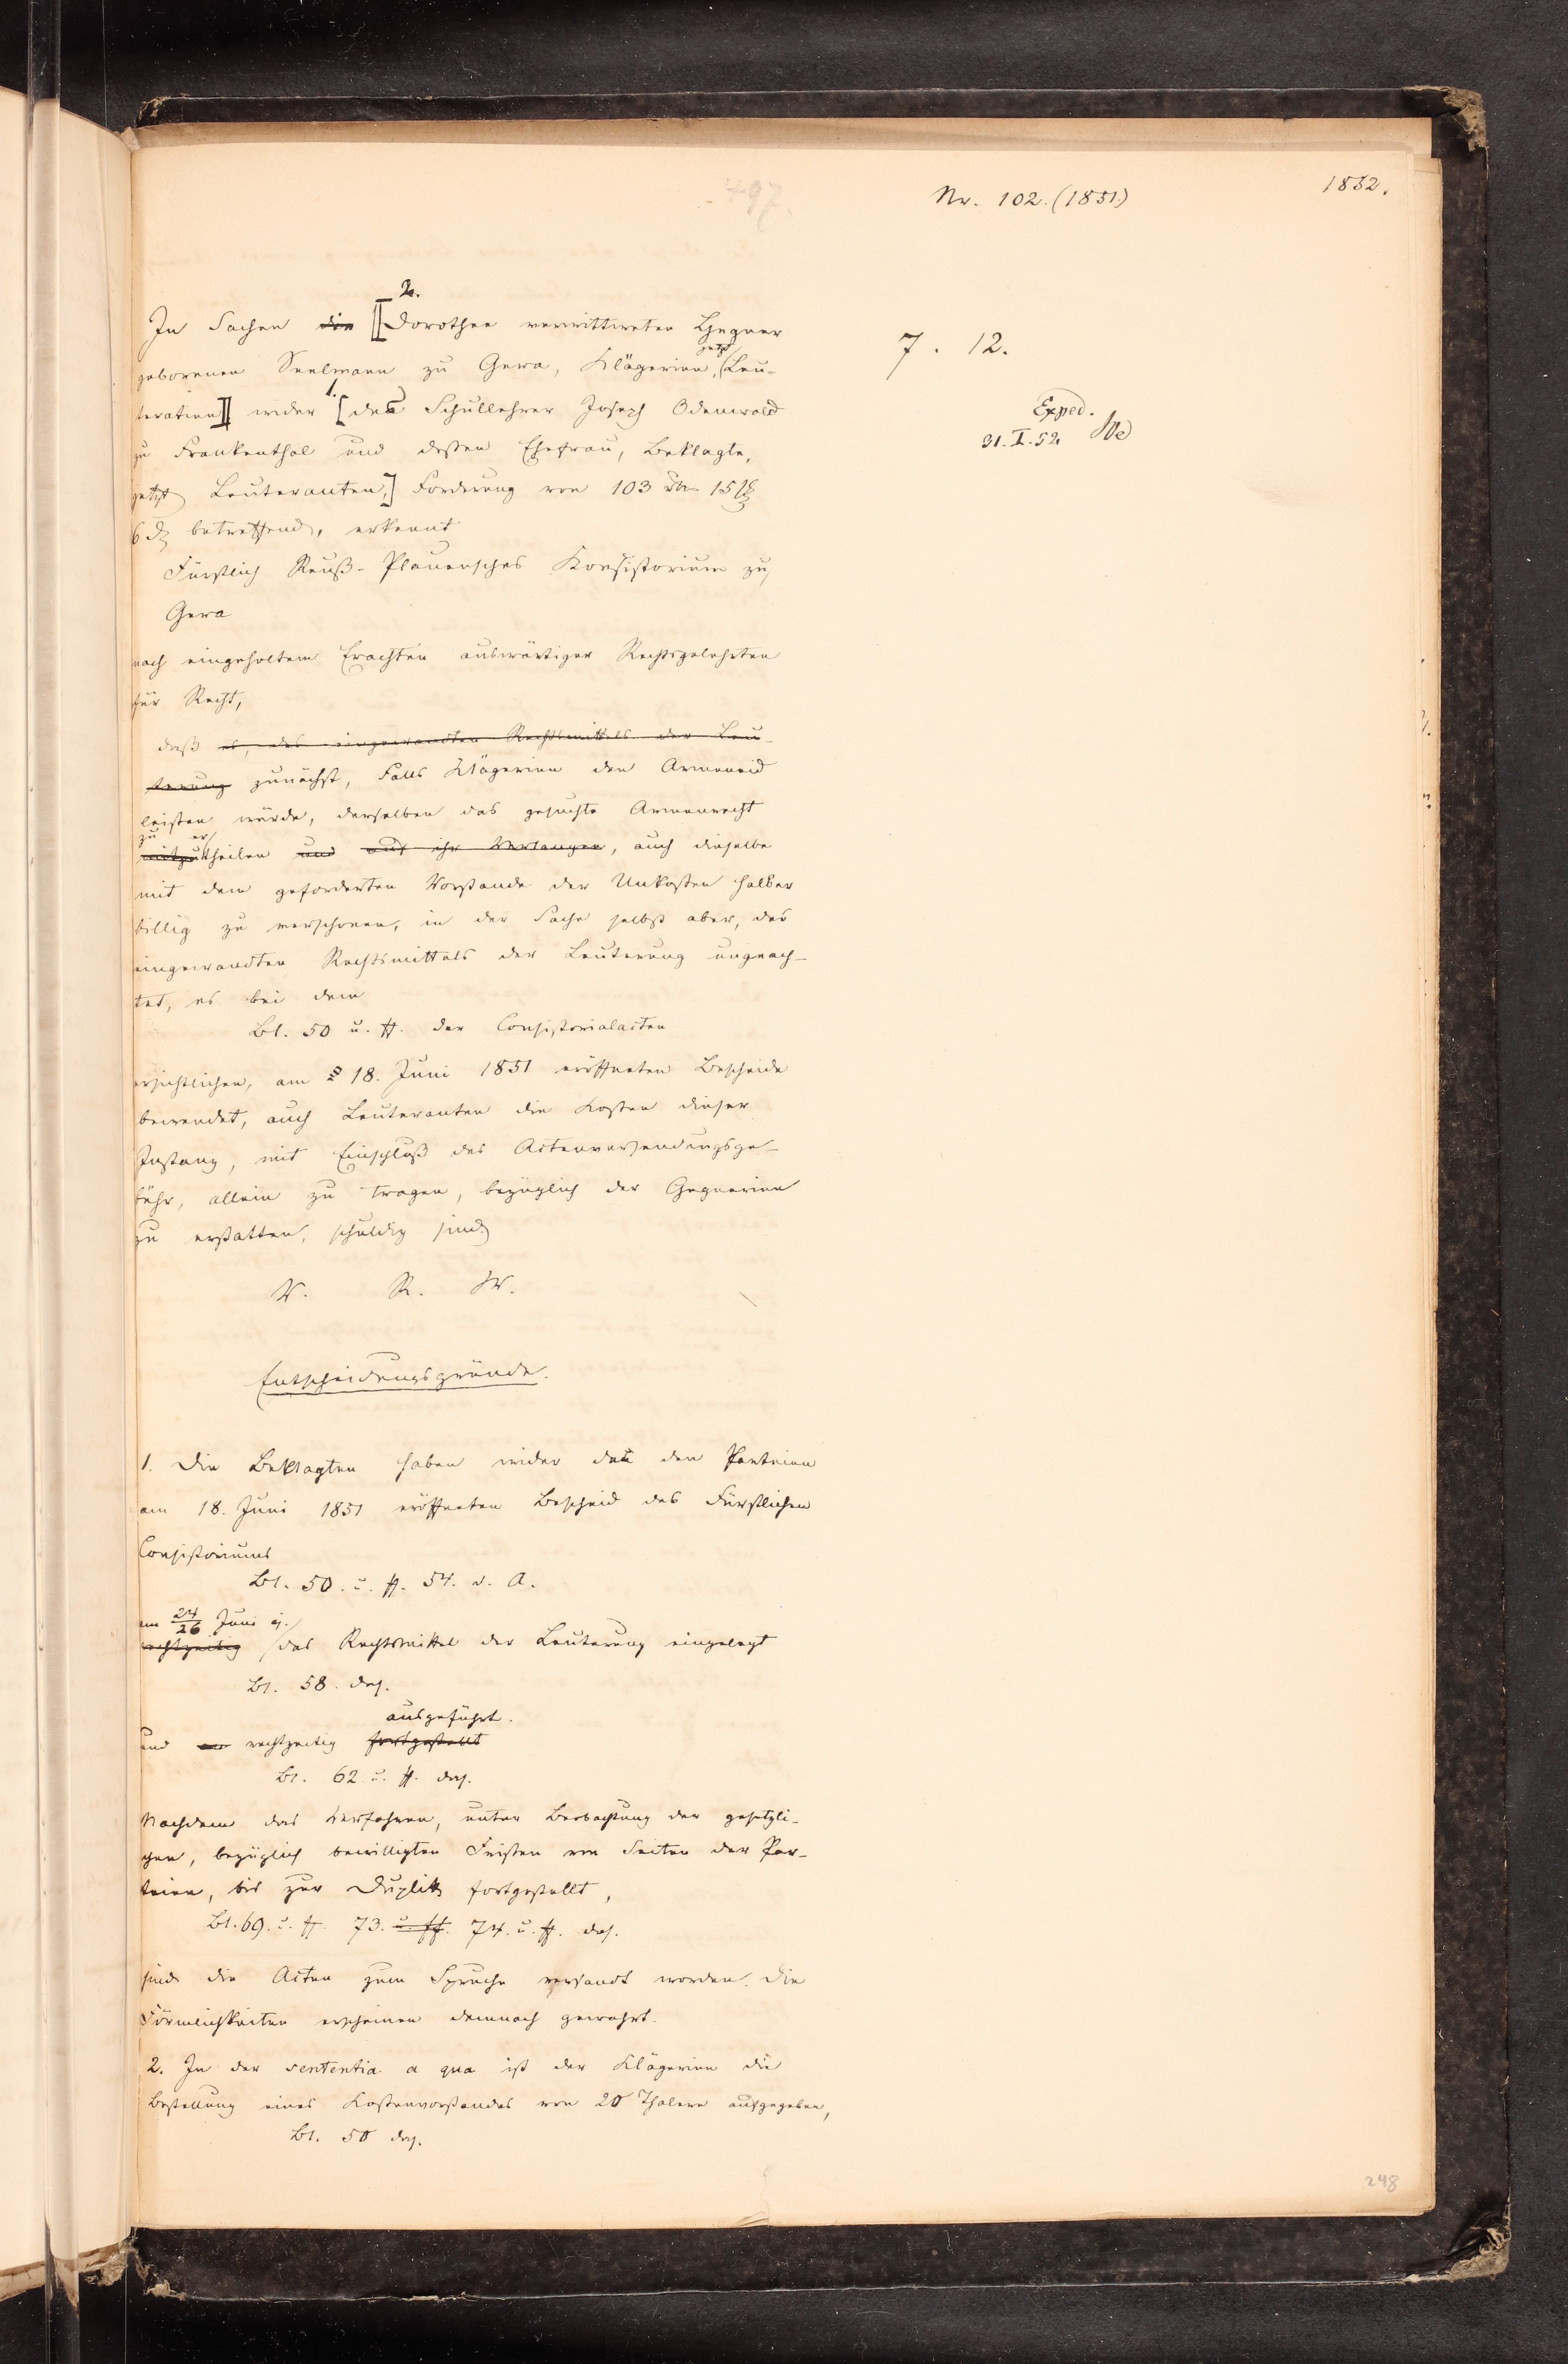 497.
Nr. 102. (1851)
1852.
2.
In Sachen die [Dorothee verwittweten
geborenen Seelmann zu Gera, Klägerin, jetzt Leu-
teratin] wider 1. [des Schullehrer Joseph Odenwald
zu Frankenthal und dessen Ehefrau, Beklagte,
jetzt Leuteranten,] Forderung von 103 rth 15
6 d betreffend, erkennt
Fürstlich Reuß-Plauensches Konsistorium zu
Gera
nach eingeholtem Erachten auswärtiger Rechtsgelehrten
für Recht,
daß es, des eingewandten Rechtsmittels der Leu-
terung zunächst, Falls Klägerin den Armeneid
leisten würde, derselben das gesuchte Armenrecht
zu er
mitzutheilen und auf ihr Verlangen, auch dieselbe
mit dem geforderten Vorstande der Unkosten halber
billig zu verschonen, in der Sache selbst aber, des
eingewandten Rechtsmittels der Leuterung ungeach-
tet, es bei dem
Bl. 50 u. ff. der Consistorialacten
ersichtlichen, am 18. Juni 1851 eröffneten Bescheide
bewendet, auch Leuteranten die Kosten dieser
Instanz, mit Einschluß des Actenversendungsge-
bühr, allein zu tragen, bezüglich der Gegnerin
zu erstatten, schuldig sind
V. R. W.
Entscheidungsgründe.
1. Die Beklagten haben wider den den Parteien
am 18. Juni 1851 eröffneten Bescheid des Fürstlichen
Consistoriums
Bl. 50. u. ff. 54. d. A.
am 24/26 Juni ej.
rechtzeitig das Rechtsmittel der Leuterung eingelegt
Bl. 58. das.
ausgeführt.
und rechtzeitig fortgestellt
Bl. 62 u. ff. das.
Nachdem das Verfahren, unter Beobachtung der gesetzli-
chen, bezüglich bewilligten Fristen von Seiten der Par-
teien, bis zur Duplik fortgestellt,
Bl. 69. u. ff. 73. u. ff. 74. u. ff. das.
sind die Acten zum Spruche versandt worden. Die
Förmlichkeiten erscheinen demnach gewahrt.
2. In der sententia a qua ist der Klägerin die
Bestellung eines Kostenvorstandes von 20 Thalern aufgegeben,
Bl. 50 das.
7. 12.
Exped.
31. I. 52
248